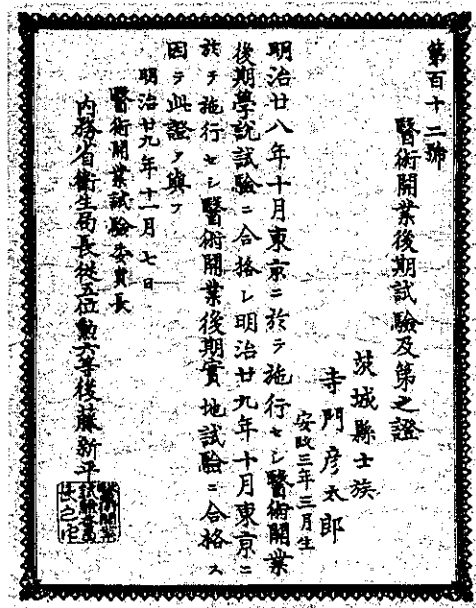 第百十二號
醫術開業後期試驗及第之證
茨城縣士族
寺門彦太郎
安政三年三月生
明治廿八年十月東京ニ於テ施行セシ醫術開業
後期學說試驗ニ合格シ明治廿九年十月東京ニ
於テ施行セシ醫術開業後期實地試驗ニ合格ス
因テ此證ヲ與フ
明治廿九年十一月七日
醫術開業試驗委員長
內務省衛生局長從五位勳六等後藤新平
醫術開業
試驗委員
長之印